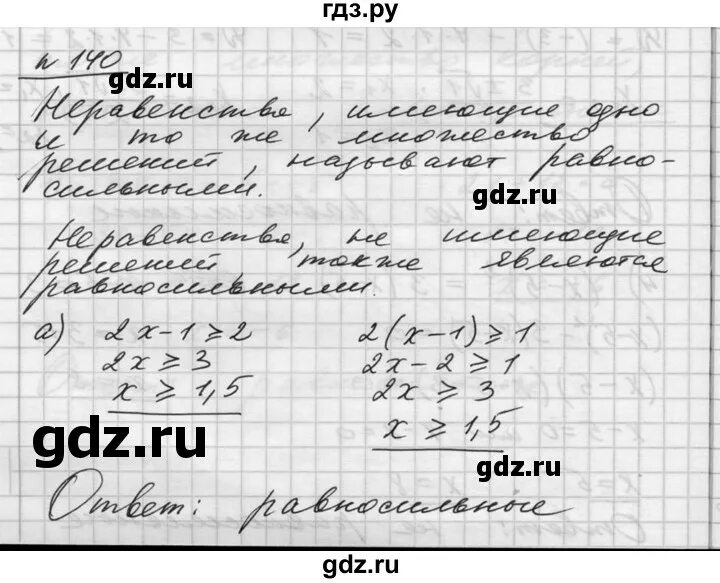 гдз.ру
n 140
Неравенства, имеющие одно
и то же множество
решений, называют равно-
сильными.
гдз.ру
Неравенства, не имеющие
решений, также являются
равносильными.
а) 2x-1≥2 2(x-1)≥1
2x≥3 2x-2≥1
x≥1,5 2x≥3
gdz.ru x≥1,5
gdz.ru
Ответ: равносильные
gdz.ru